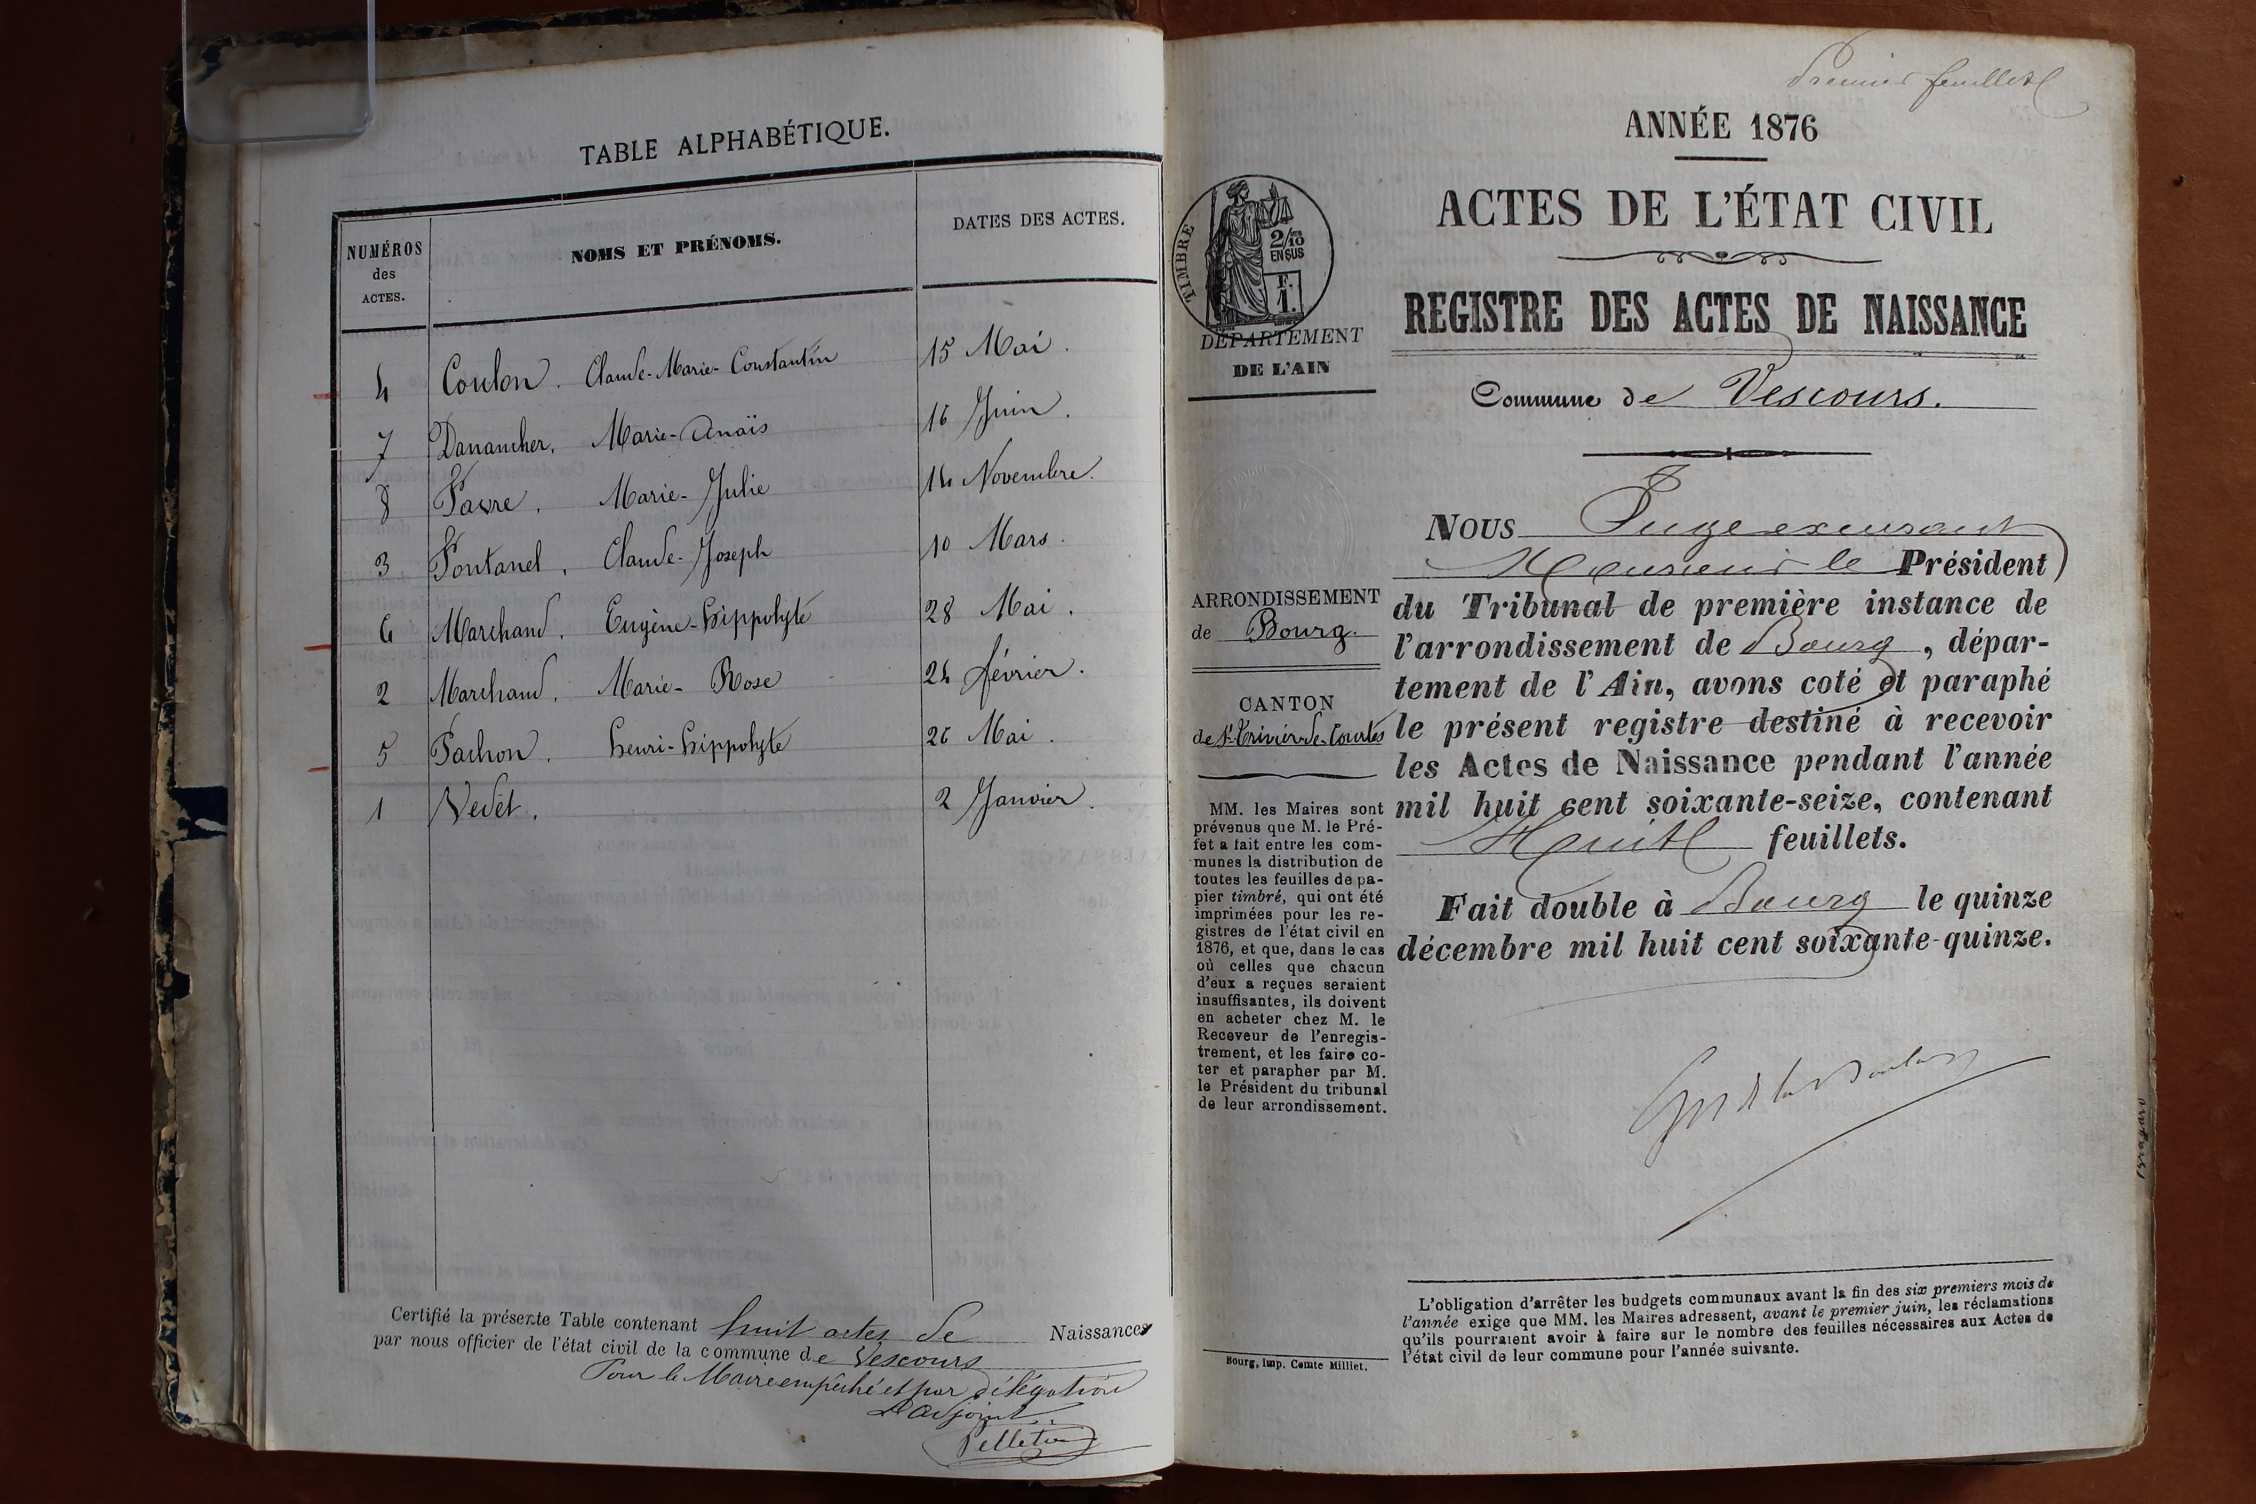 TABLE ALPHABÉTIQUE.
NUMÉROS
des
ACTES.
NOMS ET PRÉNOMS.
DATES DES ACTES.
4 Coulon. Claude-Marie-Constantin 15 Mai.
7 Danancher. Marie-Anaïs 16 Juin.
8 Favre. Marie-Julie 14 Novembre.
3 Fontanel. Claude-Joseph 10 Mars.
6 Marchand. Eugène-hippolyte 28 Mai.
2 Marchand. Marie-Rose 24 février.
5 Pachon. henri-hippolyte 26 Mai.
1 Vedel. 2 Janvier.
Certifié la présente Table contenant huit actes de Naissances
par nous officier de l'état civil de la commune de Vescours
Pour le Maire empêché et par délégation
L'adjoint
Pelletier
Premier feuillet
ANNÉE 1876
ACTES DE L'ÉTAT CIVIL
REGISTRE DES ACTES DE NAISSANCE
Commune de Vescours.
TIMBRE
2/10
EN SUS
F.
1.
DÉPARTEMENT
DE L'AIN
ARRONDISSEMENT
de Bourg.
CANTON
de St Trivier-de-Courtes
MM. les Maires sont
prévenus que M. le Pré-
fet a fait entre les com-
munes la distribution de
toutes les feuilles de pa-
pier timbré, qui ont été
imprimées pour les re-
gistres de l'état civil en
1876, et que, dans le cas
où celles que chacun
d'eux a reçues seraient
insuffisantes, ils doivent
en acheter chez M. le
Receveur de l'enregis-
trement, et les faire co-
ter et parapher par M.
le Président du tribunal
de leur arrondissement.
Bourg, Imp. Comte Milliet.
NOUS Juge excusant
Monsieur le Président
du Tribunal de première instance de
l'arrondissement de Bourg, dépar-
tement de l'Ain, avons coté et paraphé
le présent registre destiné à recevoir
les Actes de Naissance pendant l'année
mil huit cent soixante-seize, contenant
Huit feuillets.
Fait double à Bourg le quinze
décembre mil huit cent soixante-quinze.
L'obligation d'arrêter les budgets communaux avant la fin des six premiers mois de
l'année exige que MM. les Maires adressent, avant le premier juin, les réclamations
qu'ils pourraient avoir à faire sur le nombre des feuilles nécessaires aux Actes de
l'état civil de leur commune pour l'année suivante.